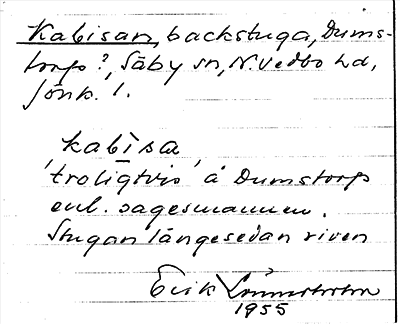 Kabisan, backstuga, Dums-
torp?, Säby sn, N. Vedbo hd,
Jönk. l.
kabì̱sa
'troligtvis' å Dumstorp
enl. sagesmannen.
Stugan längesedan riven
Erik
1955